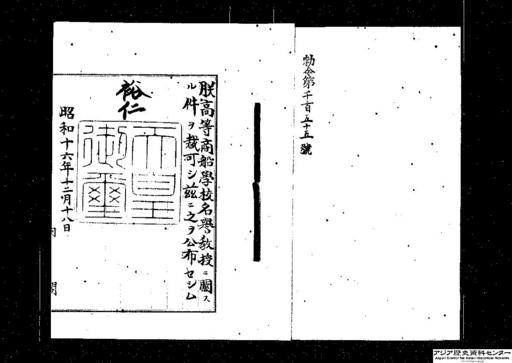 勅令第千百五十五號
朕高等商船學校名譽敎授ニ關ス
ル件ヲ裁可シ茲ニ之ヲ公布セシム
裕仁
天皇御璽
昭和十六年十二月十八日
内閣
アジア歴史資料センター
Japan Center for Asian Historical Records